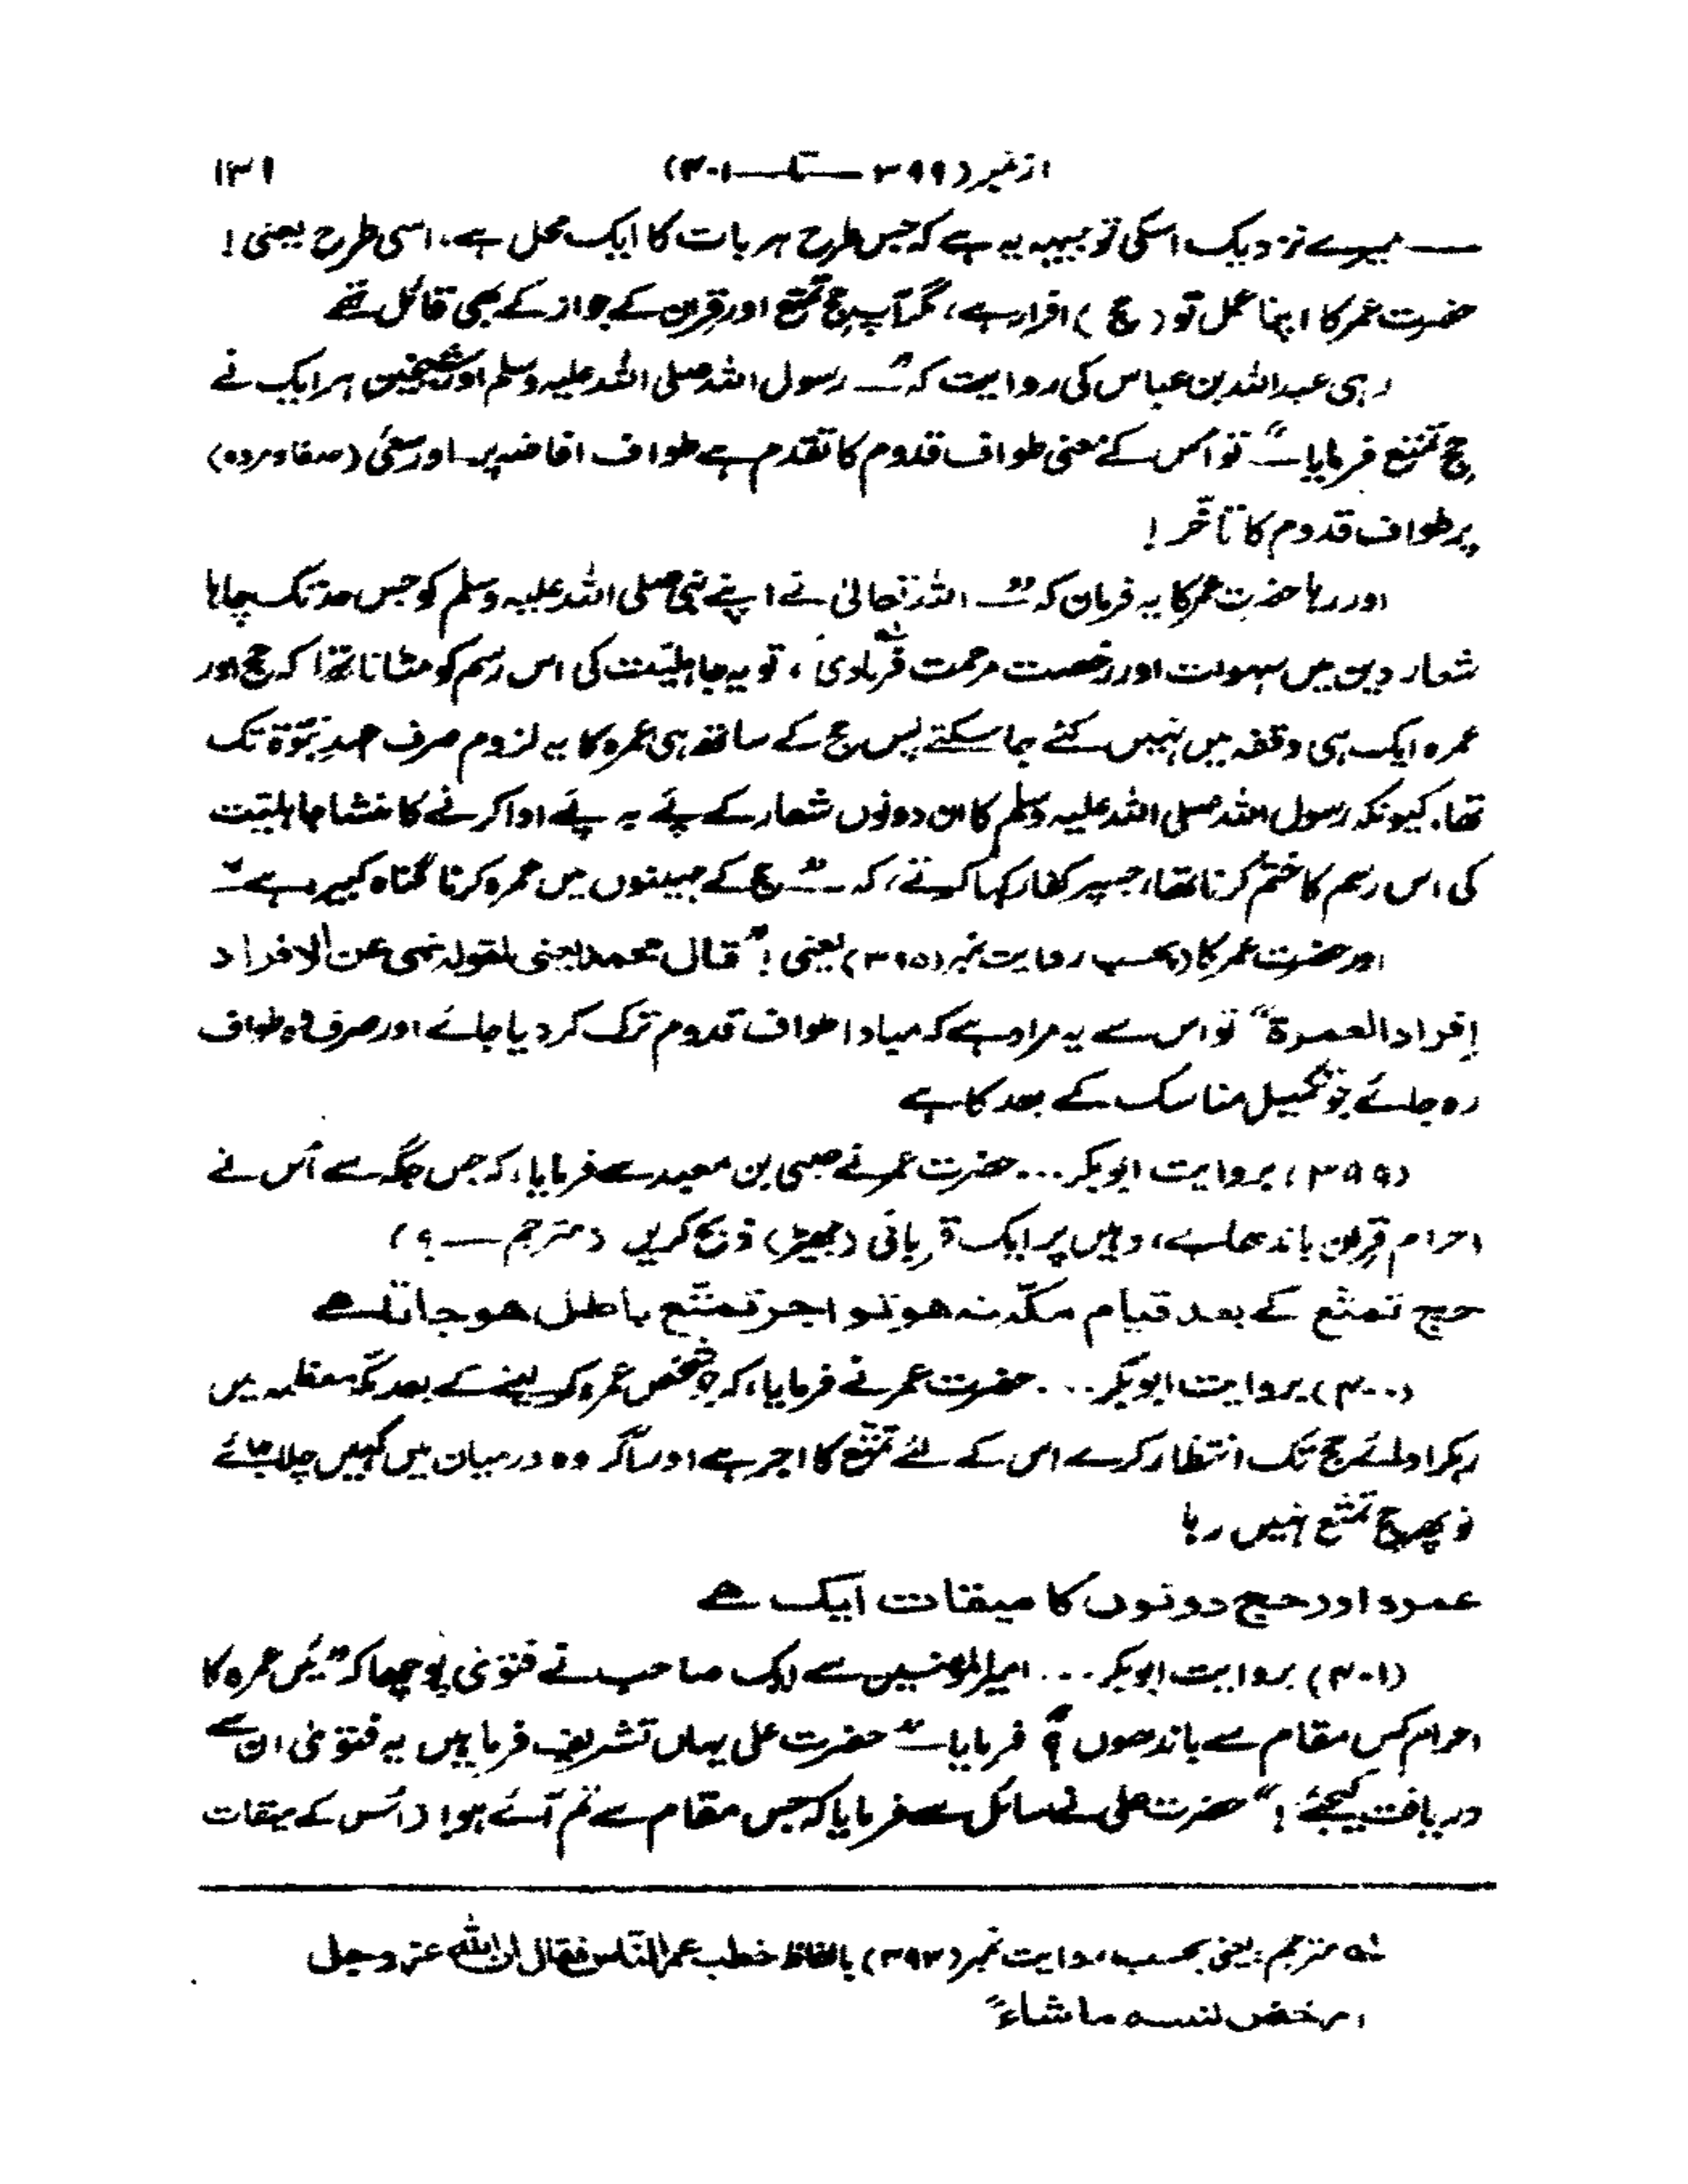 از نمبر (۳۹۹ ـــ تا ـــ ۴۰۱) ۱۳۱
ـــ میرے نزدیک اسکی توجیہہ یہ ہے کہ جس طرح ہر بات کا ایک محل ہے، اسی طرح یعنی!
حضرت عمر کا اپنا عمل تو (حج) افراد ہے، مگر آپ حج تمتع اور قِران کے جواز کے بھی قائل تھے
رہی عبداللہ بن عباس کی روایت کہ "ـــ رسول اللہ صلی اللہ علیہ وسلم اور شیخین ہر ایک نے
حج تمتع فرمایا ـــ" تو اس کے معنی طواف قدوم کا تقدم ہے طواف افاضہ پر۔ اور سعی (صفا و مروہ)
پر طواف قدوم کا تأخر!
اور رہا حضرت عمر کا یہ فرمان کہ "ـــ اللہ تعالیٰ نے اپنے نبی صلی اللہ علیہ وسلم کو جس حد تک چاہا
شعار دین میں سہولت اور رخصت مرحمت فرمادی، تو یہ جاہلیت کی اس رسم کو مٹانا تھا کہ حج اور
عمرہ ایک ہی وقفہ میں نہیں کئے جا سکتے پس حج کے ساتھ ہی عمرہ کا یہ لزوم صرف عہدِ نبوّۃ تک
تھا، کیونکہ رسول اللہ صلی اللہ علیہ وسلم کا ان دونوں شعار کے پئے بہ پئے ادا کرنے کا منشا جاہلیت
کی اس رسم کا ختم کرنا تھا، جسپر کفار کہا کرتے، کہ "ـــ حج کے مہینوں میں عمرہ کرنا گناہ کبیرہ ہے ـــ"
اور حضرت عمر کا (بحسب روایت نمبر (۳۹۵) یعنی! "قال محمد یعنی بقولہ نہی عن الافراد
إفراد العمرۃ" تو اس سے یہ مراد ہے کہ مبادا طواف قدوم ترک کر دیا جائے اور صرف وہ طواف
رہ جائے جو تکمیل مناسک کے بعد کا ہے
(۳۹۹) بروایت ابوبکر... حضرت عمر نے صبی بن معبد سے فرمایا، کہ جس جگہ سے اُس نے
احرام قِران باندھا ہے، وہیں پر ایک قربانی (بھیڑ) ذبح کریں (مترجم ـــ ؟)
حج تمتّع کے بعد قیام مکّہ نہ ہو تو اجر تمتّع باطل ہو جاتا ہے
(۴۰۰) بروایت ابوبکر... حضرت عمر نے فرمایا، کہ جو شخص عمرہ کر لینے کے بعد مکّہ معظمہ میں
رہکر ادائے حج تک انتظار کرے اس کے لئے تمتّع کا اجر ہے اور اگر وہ درمیان میں کہیں چلا جائے
تو پھر حج تمتع نہیں رہا
عمرہ اور حج دونوں کا میقات ایک ہے
(۴۰۱) بروایت ابوبکر... امیرالمومنین سے ایک صاحب نے فتویٰ پوچھا کہ "میں عمرہ کا
احرام کس مقام سے باندھوں؟" فرمایا ـــ "حضرت علی یہاں تشریف فرما ہیں یہ فتویٰ ان سے
دریافت کیجئے!" حضرت علی نے سائل سے فرمایا کہ جس مقام سے تم آئے ہو! (اُس کے میقات
لہ مترجم: یعنی بحسب روایت نمبر (۳۹۳) بالفاظ خطب عمر الناس فقال ان اللہ عز وجل
رخص لنبیہ ما شاء"